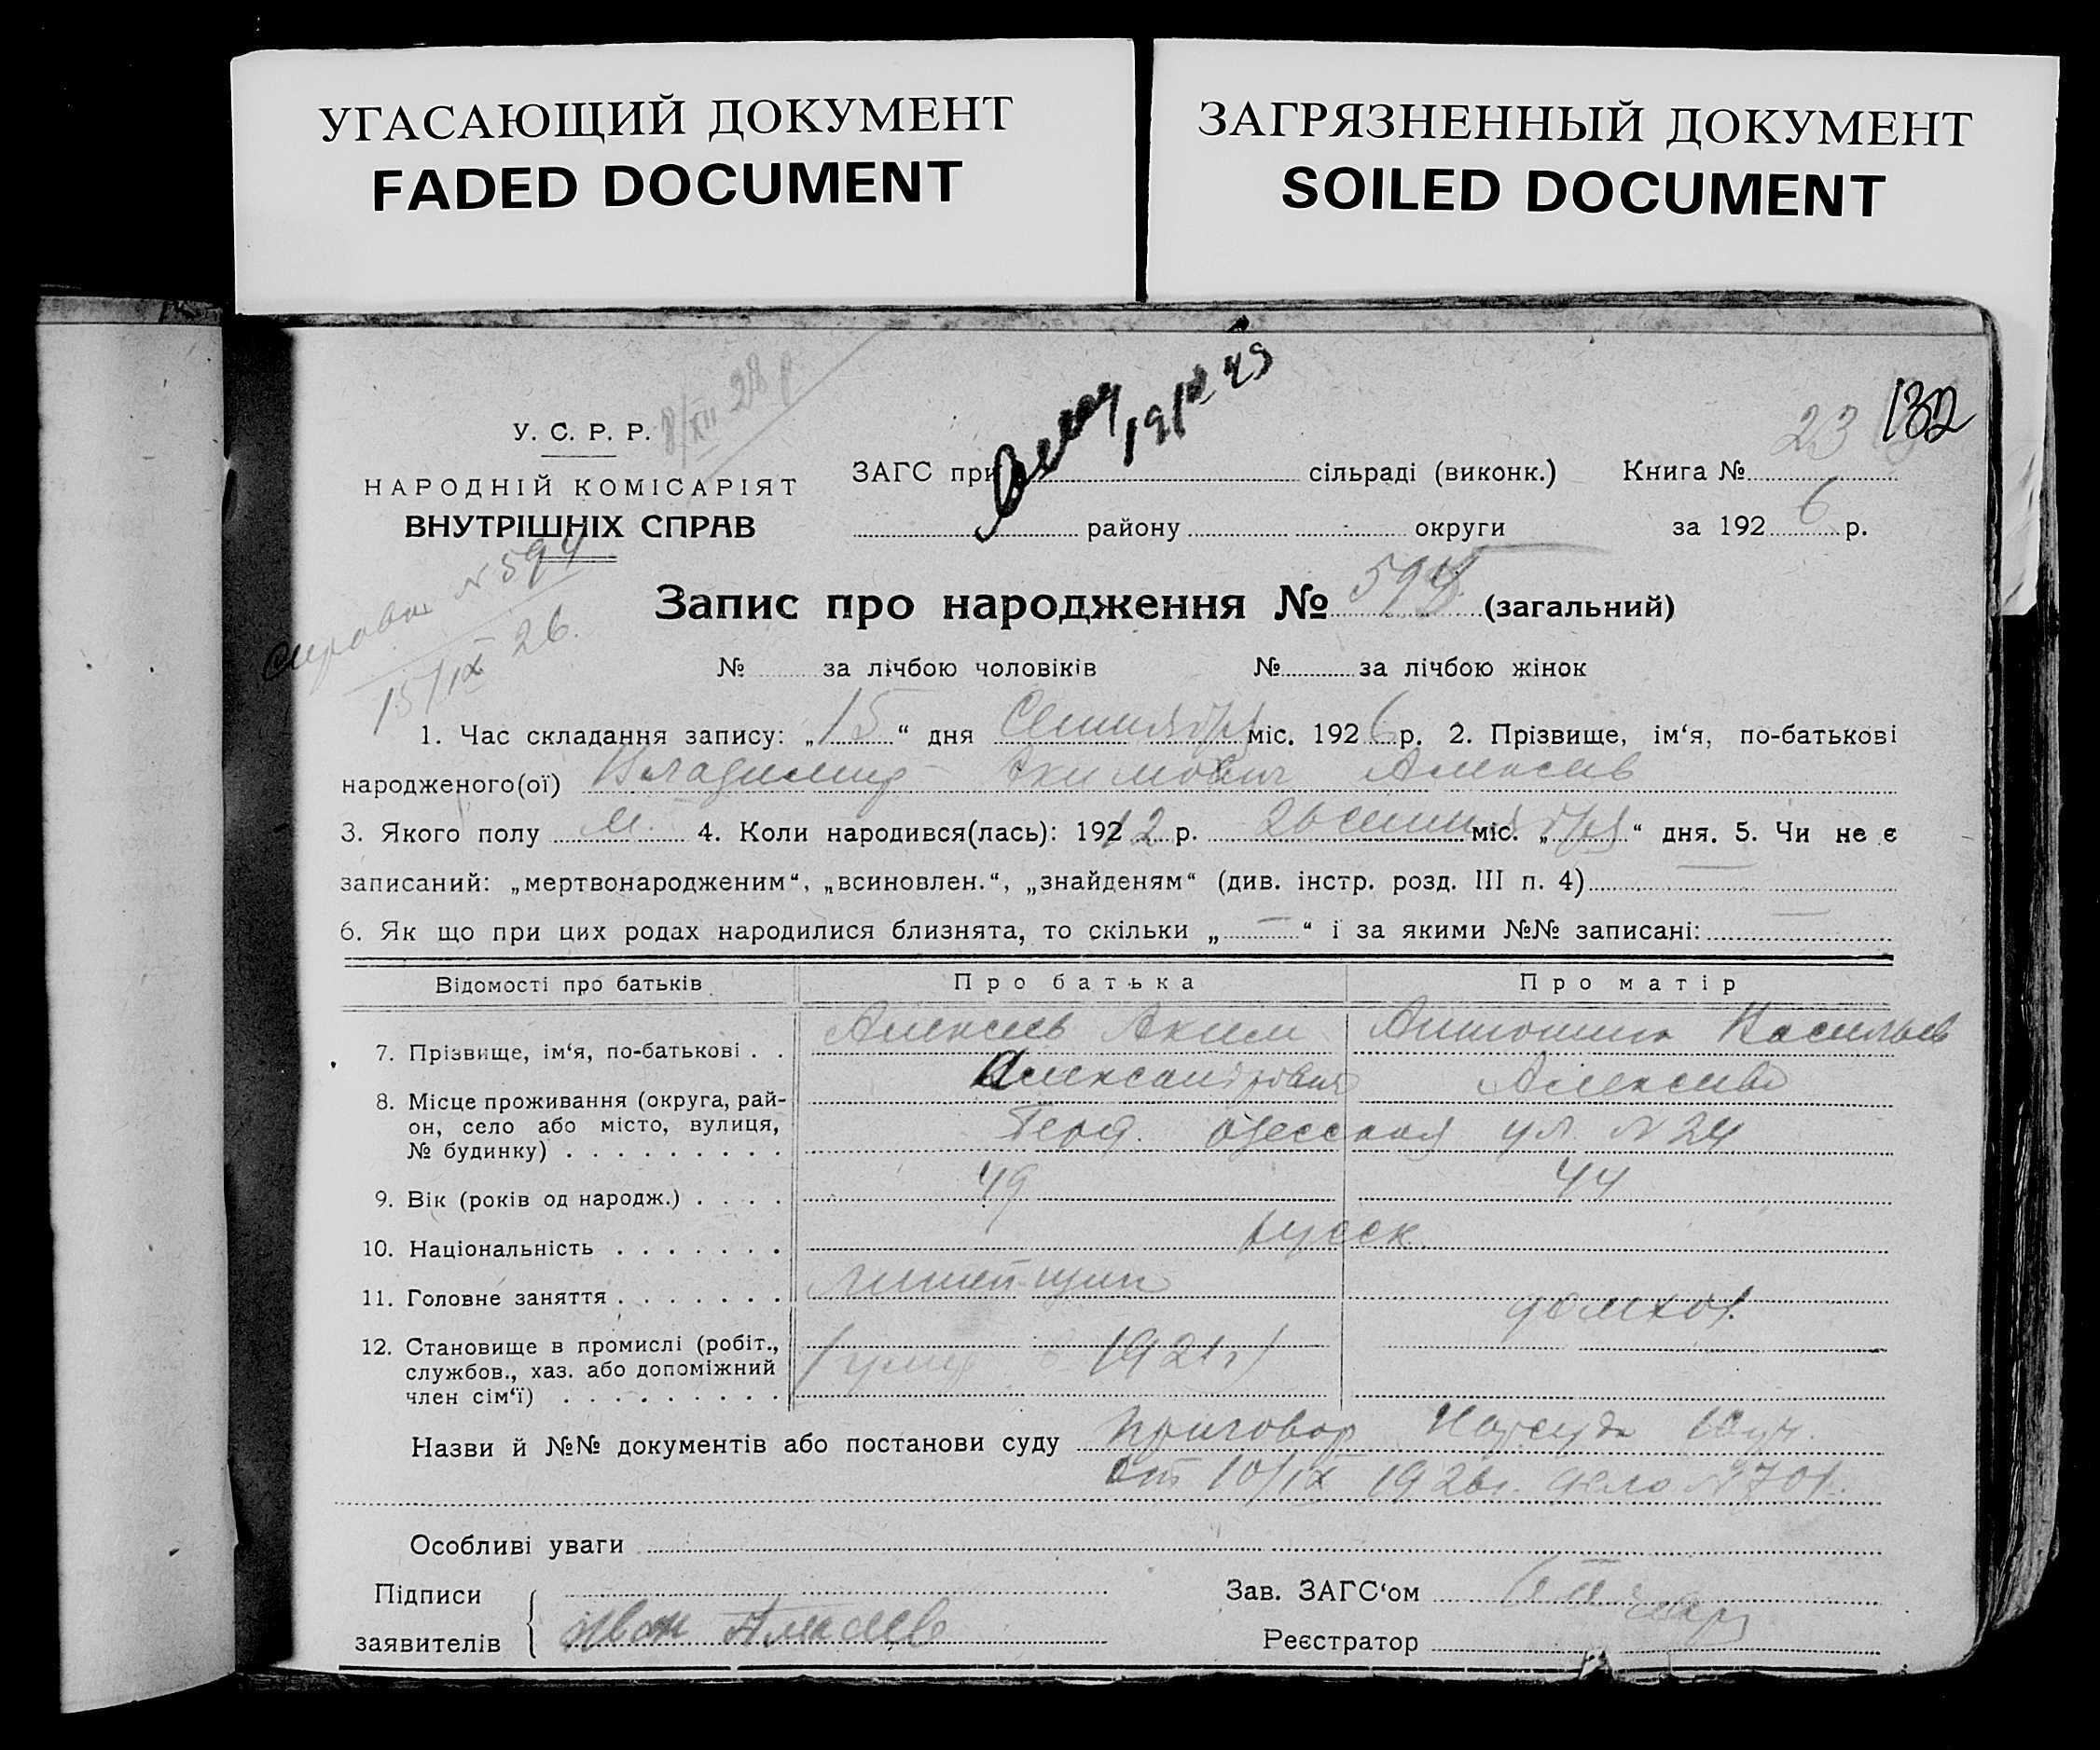 УГАСАЮЩИЙ ДОКУМЕНТ
FADED DOCUMENT
ЗАГРЯЗНЕННЫЙ ДОКУМЕНТ
SOILED DOCUMENT
8/XII 28 г.
23 132
У. С. Р. Р.
НАРОДНІЙ КОМІСАРІЯТ
ВНУТРІШНІХ СПРАВ
ЗАГС при сільраді (виконк.) Книга №
району округи за 1926 р.
№ 594
15/IX 26.
Запис про народження № 594 (загальний)
№ за лічбою чоловіків № за лічбою жінок
1. Час складання запису: „15“ дня Сентября міс. 1926 р. 2. Прізвище, ім‘я, по-батькові
народженого(ої) Владимир Акимович Алексеев
3. Якого полу м. 4. Коли народився(лась): 1912 р. 26 сентября міс. „ “ дня. 5. Чи не є
записаний: „мертвонародженим“, „всиновлен.“, „знайденям“ (див. інстр. розд. III п. 4) —
6. Як що при цих родах народилися близнята, то скільки „—“ і за якими №№ записані: —
Відомості про батьків Про батька Про матір
7. Прізвище, ім‘я, по-батькові . . Алексеев Аким Васильев
Александрович Алексеева
8. Місце проживання (округа, рай-
он, село або місто, вулиця,
№ будинку) . . . . . . . . . Одесская ул. № 24
9. Вік (років од народж.) . . . . 49 44
10. Національність . . . . . . . русск.
11. Головне заняття . . . . . . . Литейщик домхоз.
12. Становище в промислі (робіт.,
службов., хаз. або допоміжний
член сім‘ї) . . . . . . . . . (умер в 1921 г)
Назви й №№ документів або постанови суду Приговор Нарсуда
от 10/IX 1926 г. дело № 701.
Особливі уваги
Підписи
заявителів Иван Алексеев
Зав. ЗАГС‘ом
Реєстратор